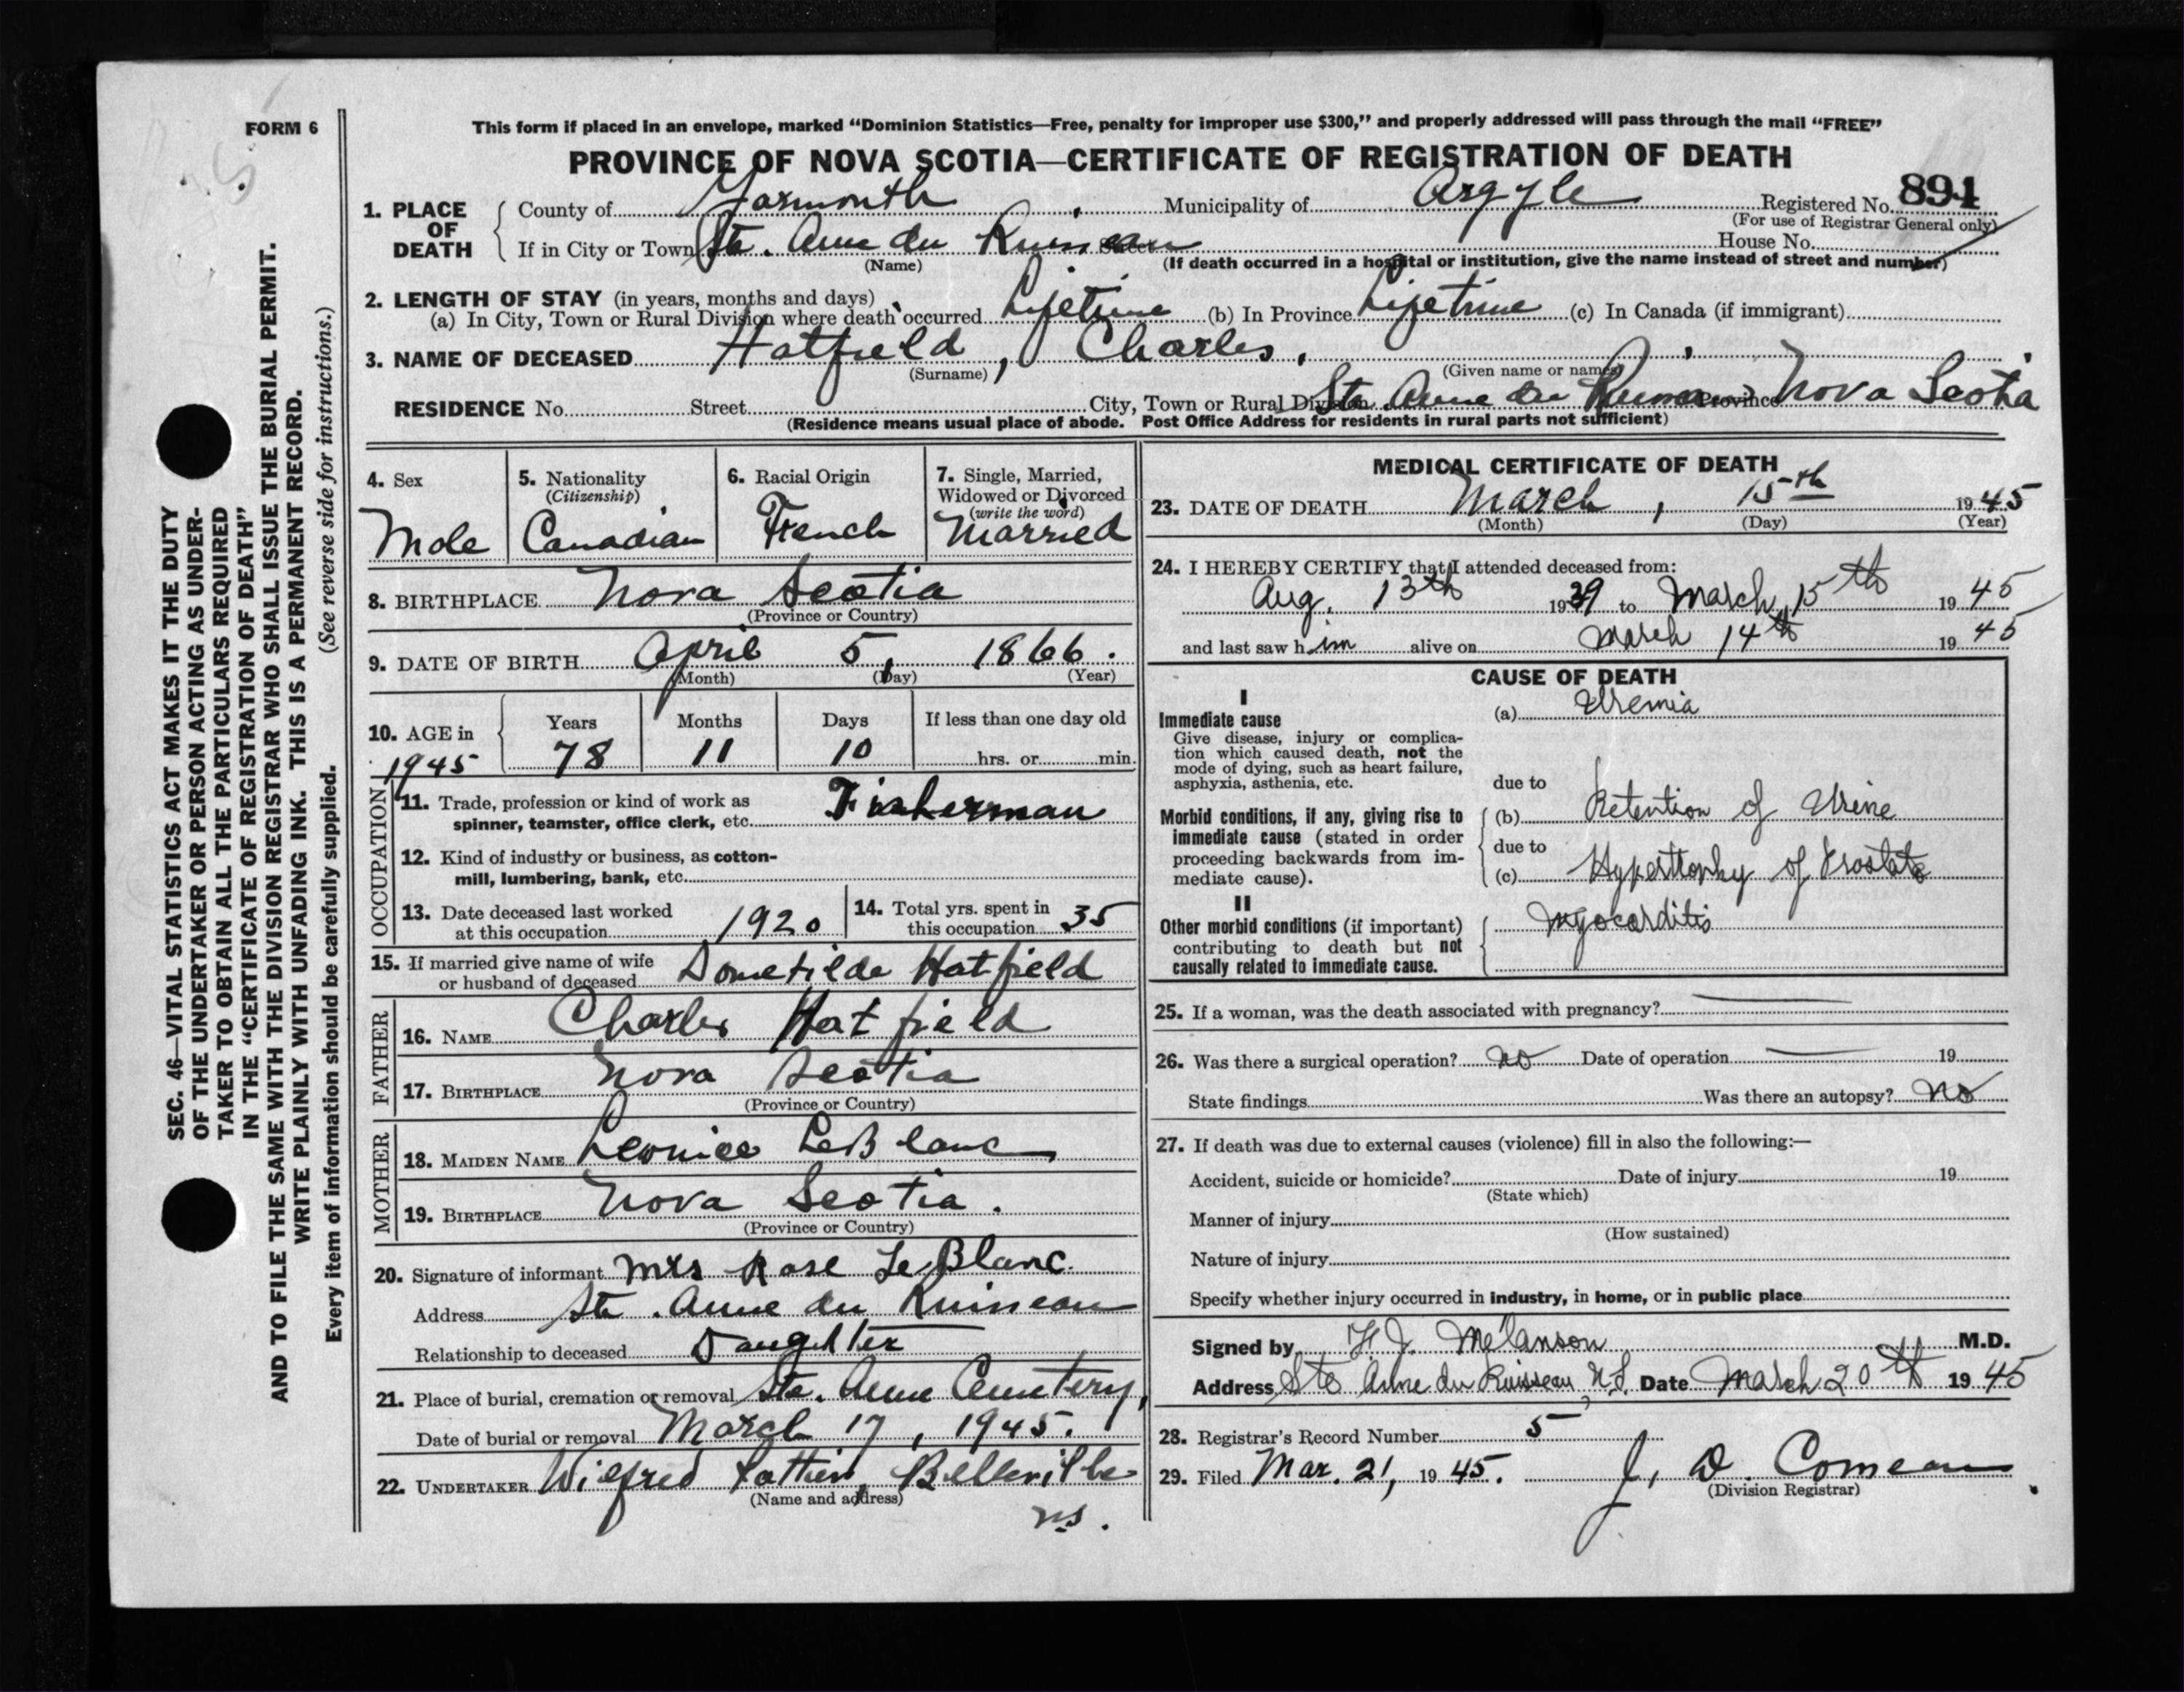 FORM 6
This form if placed in an envelope, marked “Dominion Statistics—Free, penalty for improper use $300,” and properly addressed will pass through the mail “FREE”
PROVINCE OF NOVA SCOTIA—CERTIFICATE OF REGISTRATION OF DEATH
1. PLACE OF DEATH
County of Yarmouth Municipality of Argyle Registered No. 894
(For use of Registrar General only)
If in City or Town Ste. Anne du Ruisseau Street House No.
(Name) (If death occurred in a hospital or institution, give the name instead of street and number)
2. LENGTH OF STAY (in years, months and days)
(a) In City, Town or Rural Division where death occurred Lifetime (b) In Province Lifetime (c) In Canada (if immigrant)
3. NAME OF DECEASED Hatfield, Charles.
(Surname) (Given name or names)
RESIDENCE No. Street City, Town or Rural Division Ste. Anne du Province Nova Scotia
(Residence means usual place of abode. Post Office Address for residents in rural parts not sufficient)
4. Sex
Male
5. Nationality
(Citizenship)
Canadian
6. Racial Origin
French
7. Single, Married,
Widowed or Divorced
(write the word)
Married
8. BIRTHPLACE Nova Scotia
(Province or Country)
9. DATE OF BIRTH April 5, 1866.
(Month) (Day) (Year)
10. AGE in Years Months Days If less than one day old
1945 78 11 10 hrs. or min.
OCCUPATION
11. Trade, profession or kind of work as
spinner, teamster, office clerk, etc. Fisherman
12. Kind of industry or business, as cotton-
mill, lumbering, bank, etc.
13. Date deceased last worked
at this occupation 1920
14. Total yrs. spent in
this occupation 35
15. If married give name of wife
or husband of deceased Dometilde Hatfield
FATHER
16. NAME Charles Hatfield
17. BIRTHPLACE Nova Scotia
(Province or Country)
MOTHER
18. MAIDEN NAME Leonice LeBlanc
19. BIRTHPLACE Nova Scotia.
(Province or Country)
20. Signature of informant Mrs Rose LeBlanc.
Address Ste. Anne du Ruineau
Relationship to deceased Daughter
21. Place of burial, cremation or removal Ste. Anne Cemetery,
Date of burial or removal March 17, 1945.
22. UNDERTAKER Wilfred Pottier, Belleville
(Name and address)
N.S.
MEDICAL CERTIFICATE OF DEATH
23. DATE OF DEATH March, 15th 1945
(Month) (Day) (Year)
24. I HEREBY CERTIFY that I attended deceased from:
Aug. 13th 1939 to March 15th 1945
and last saw him alive on March 14th 1945
CAUSE OF DEATH
I
Immediate cause
Give disease, injury or complica-
tion which caused death, not the
mode of dying, such as heart failure,
asphyxia, asthenia, etc.
(a) Uremia
due to
Morbid conditions, if any, giving rise to
immediate cause (stated in order
proceeding backwards from im-
mediate cause).
(b) Retention of Urine
due to
(c) Hypertrophy of Prostate
II
Other morbid conditions (if important)
contributing to death but not
causally related to immediate cause.
Myocarditis
25. If a woman, was the death associated with pregnancy?
26. Was there a surgical operation? no Date of operation 19
State findings Was there an autopsy? no
27. If death was due to external causes (violence) fill in also the following:—
Accident, suicide or homicide? Date of injury 19
(State which)
Manner of injury
(How sustained)
Nature of injury
Specify whether injury occurred in industry, in home, or in public place
Signed by H J. Melanson M.D.
Address Ste Anne du Ruisseau, N.S. Date March 20th 1945
28. Registrar's Record Number 5
29. Filed Mar. 21, 1945. J. D. Comeau
(Division Registrar)
SEC. 46—VITAL STATISTICS ACT MAKES IT THE DUTY
OF THE UNDERTAKER OR PERSON ACTING AS UNDER-
TAKER TO OBTAIN ALL THE PARTICULARS REQUIRED
IN THE “CERTIFICATE OF REGISTRATION OF DEATH”
AND TO FILE THE SAME WITH THE DIVISION REGISTRAR WHO SHALL ISSUE THE BURIAL PERMIT.
WRITE PLAINLY WITH UNFADING INK. THIS IS A PERMANENT RECORD.
Every item of information should be carefully supplied. (See reverse side for instructions.)